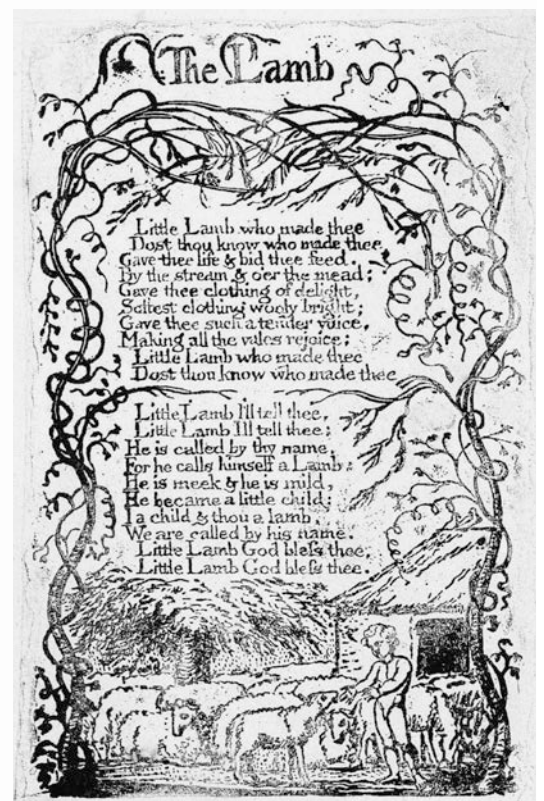 The Lamb
Little Lamb who made thee
Dost thou know who made thee
Gave thee life & bid thee feed.
By the stream & o'er the mead;
Gave thee clothing of delight,
Softest clothing wooly bright;
Gave thee such a tender voice,
Making all the vales rejoice;
Little Lamb who made thee
Dost thou know who made thee
Little Lamb I'll tell thee,
Little Lamb I'll tell thee;
He is called by thy name,
For he calls himself a Lamb:
He is meek & he is mild,
He became a little child:
I a child & thou a lamb,
We are called by his name.
Little Lamb God bleſs thee,
Little Lamb God bleſs thee.